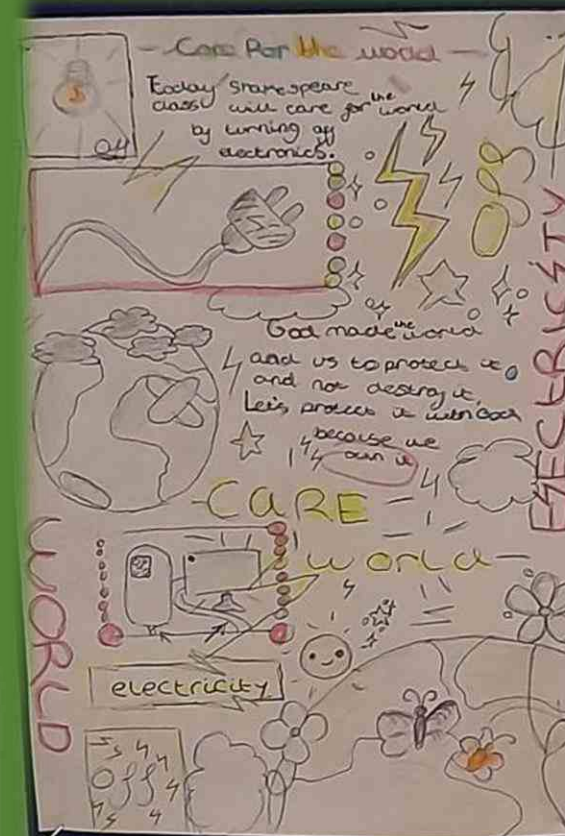 - Care For the world -
Today Shakespeare
class will care for the world
by turning off
electronics.
Off
Off
ELECTRICITY
God made the world
and us to protect it
and not destroy it.
Let's protect it with God
because we
own it
- CARE -
World -
WORLD
electricity
Off